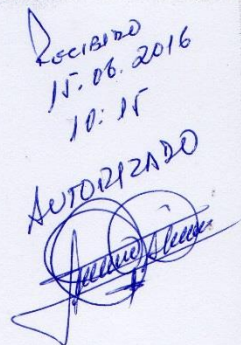 RECIBIDO
15.06.2016
10:15
AUTORIZADO